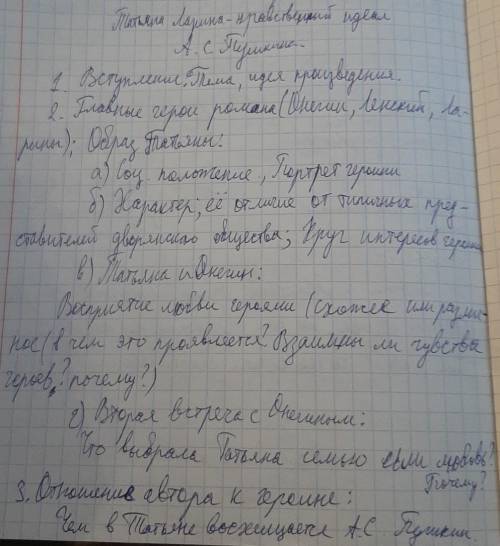 Татьяна Ларина - нравственный идеал
А. С. Пушкина.
1. Вступление. Тема, идея произведения.
2. Главные герои романа (Онегин, Ленский, Ла-
рины); Образ Татьяны:
а) Соц. положение, Портрет героини
б) Характер, её отличие от типичных пред-
ставителей дворянскао общества; Круг интересов героини
в) Татьяна и Онегин:
Восприятие любви героями (схожее или различ-
ное (в чем это проявляется? Взаимны ли чувства
героев? почему?)
г) Вторая встреча с Онегиным:
Что выбрала Татьяна семью или любовь?
Почему?
3. Отношение автора к героине:
Чем в Татьяне восхищается А.С. Пушкин.